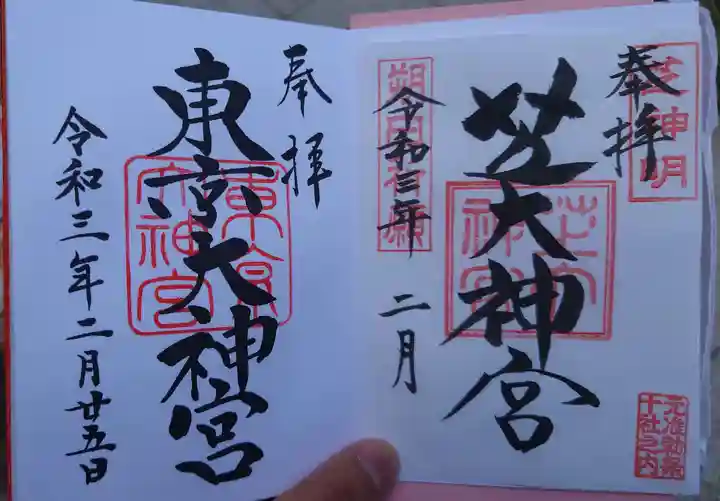 奉拝
芝神明
芝大神宮
芝大神宮
朔日祈願
令和三年 二月
元准勅祭
十社之内
奉拝
東京大神宮
東京大神宮
令和三年二月廿五日